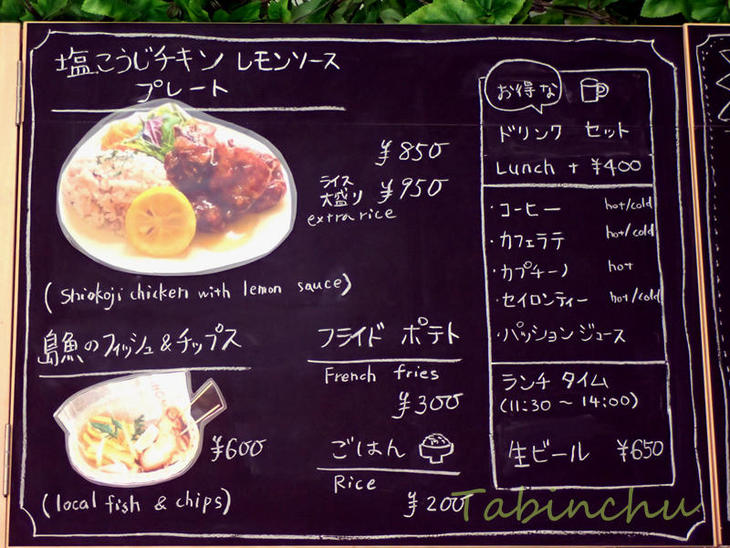 塩こうじチキン レモンソース
プレート
¥850
ライス
大盛り ¥950
extra rice
(Shiokoji chicken with lemon sauce)
島魚のフィッシュ&チップス
¥600
(local fish & chips)
フライド ポテト
French fries
¥300
ごはん
Rice
¥200
お得な
ドリンク セット
Lunch + ¥400
・コーヒー hot/cold
・カフェラテ hot/cold
・カプチーノ hot
・セイロンティー hot/cold
・パッションジュース
ランチ タイム
(11:30 ~ 14:00)
生ビール ¥650
Tabinchu